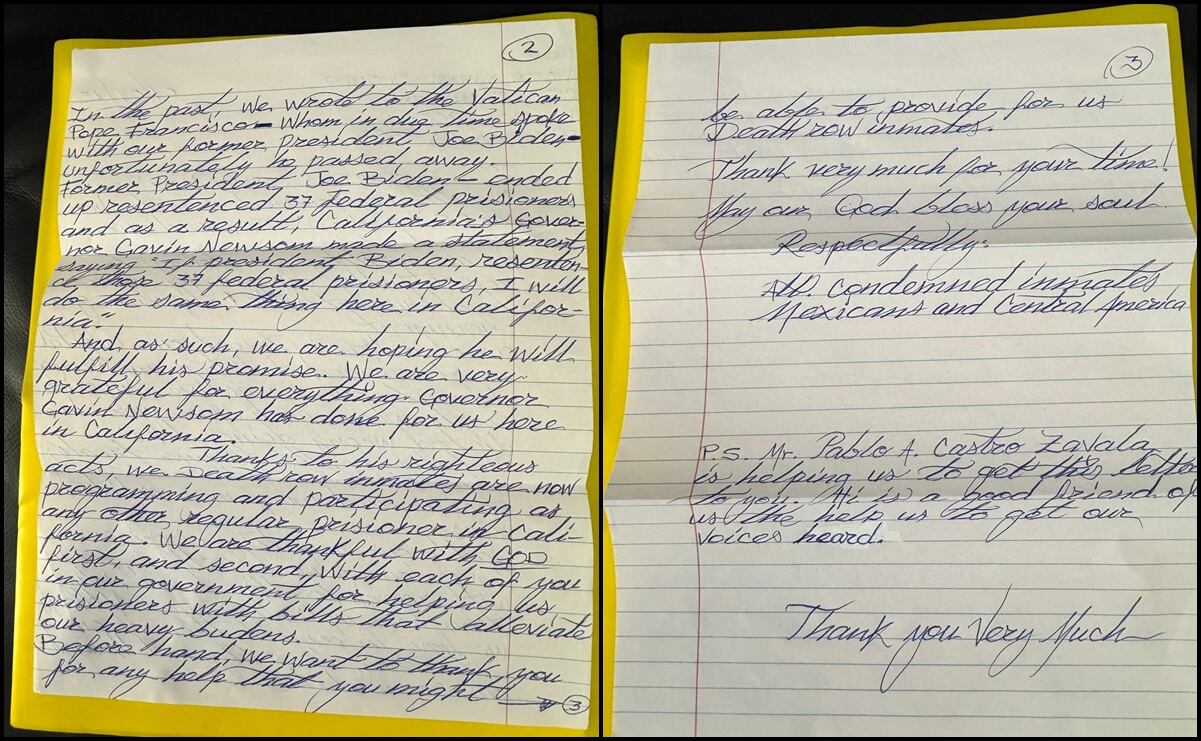 2
In the past, we wrote to the Vatican
Pope Francisco- Whom in due time spoke
with our former president Joe Biden-
unfortunately he passed away.
Former President, Joe Biden ended
up resentenced 37 federal prisioners
and as a result, California's Gover-
nor Gavin Newsom made a statement,
saying "If president Biden, resenten-
ce those 37 federal prisioners, I will
do the same thing here in Califor-
nia."
And as such, we are hoping he will
fulfill his promise. We are very
grateful for everything Governor
Gavin Newsom has done for us here
in California.
Thanks to his righteous
acts, we Death row inmates are now
programming and participating as
any other regular prisioner in Cali-
fornia. We are thankful with GOD
first, and second, With each of you
in our government for helping us
prisioners with bills that alleviate
our heavy budens.
Before hand, we want to thank you
for any help that you might → 3
3
be able to provide for us
Death row inmates.
Thank very much for your time!
May our God bless your soul.
Respectfully:
All condemned inmates
Mexicans and Central America
P.S. Mr. Pablo A. Castro Zavala,
is helping us to get this letter
to you. Hi is a good friend of
us the help us to get our
voices heard.
Thank you Very Much